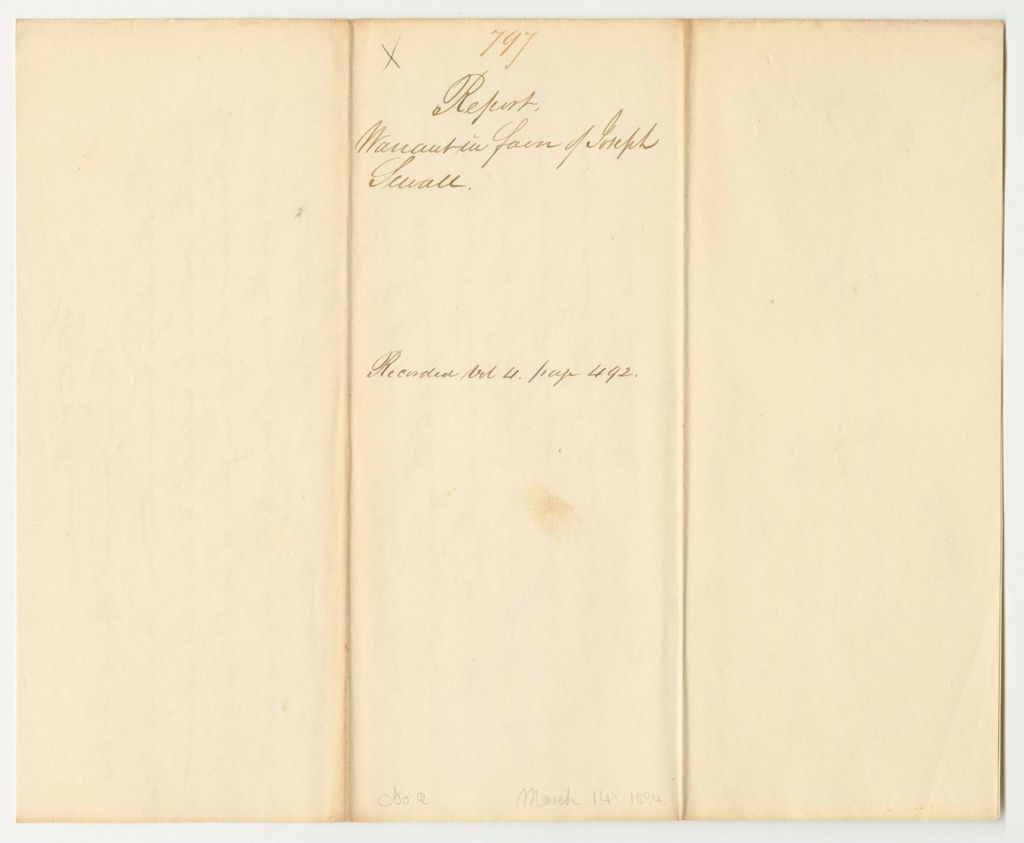 X
797
Report.
Warrant in favor of Joseph
Sewall.
Recorded Vol 4. page 492.
March 14